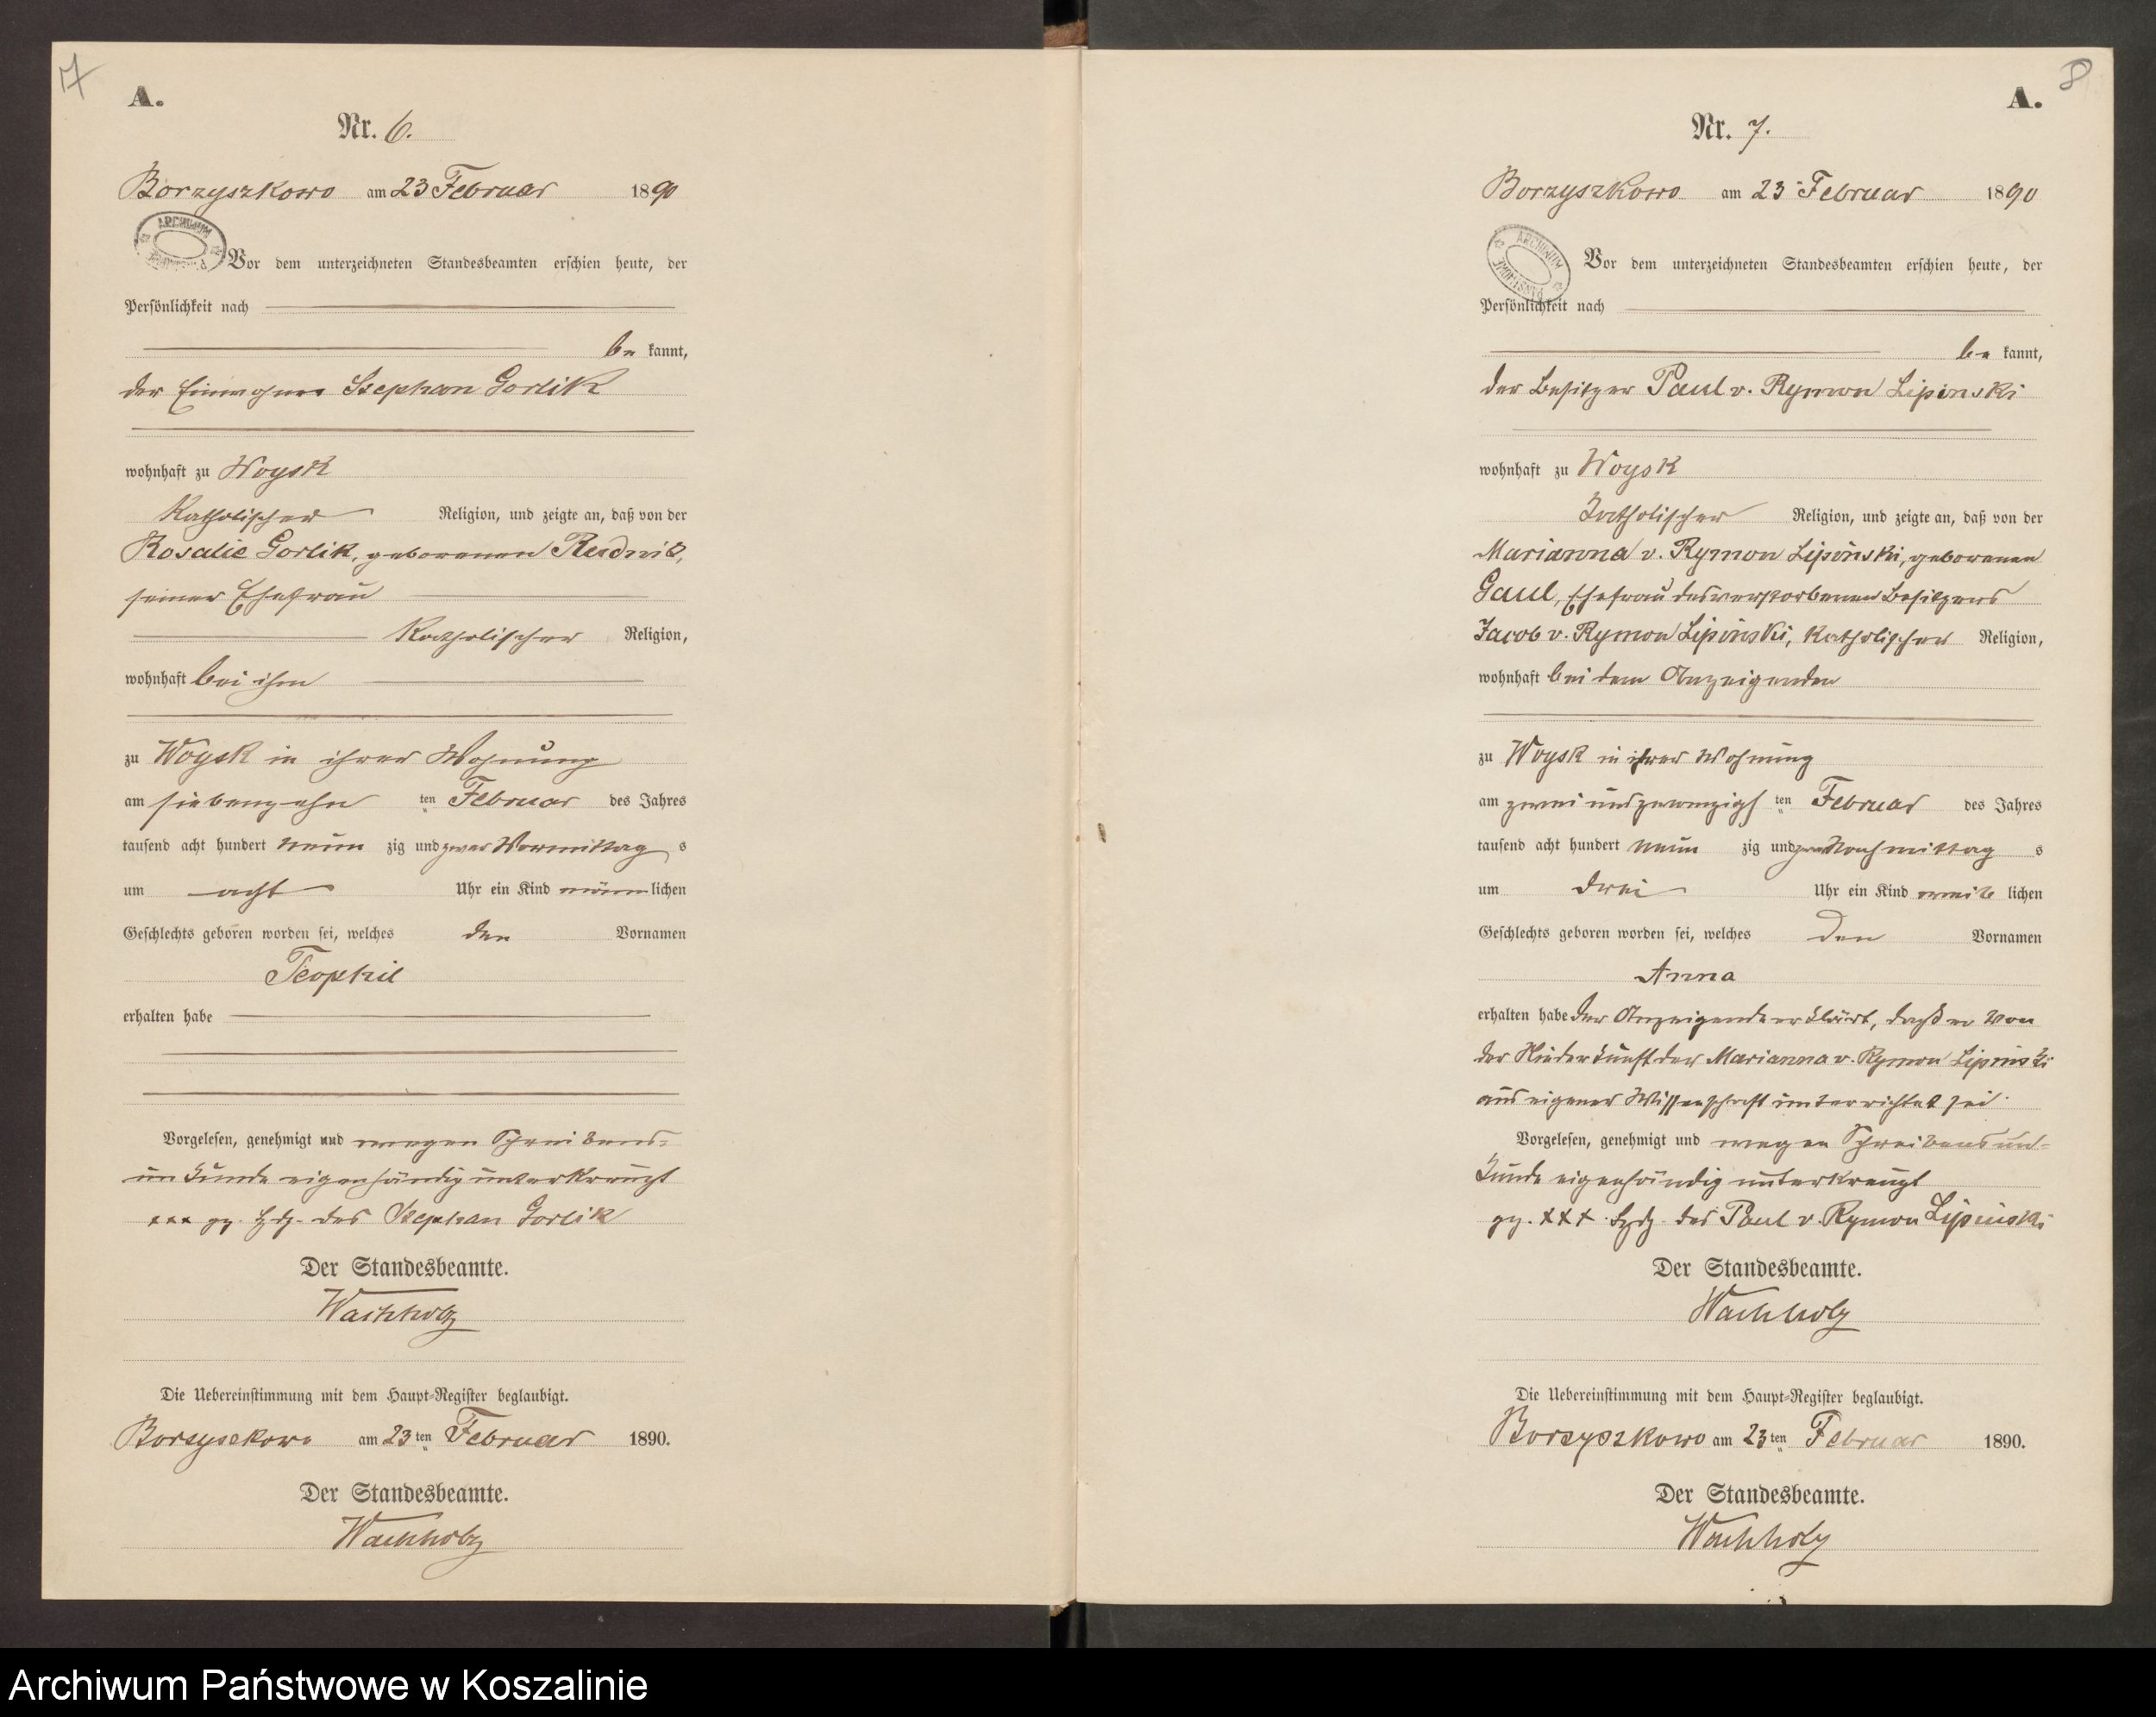 7
A.
Nr. 6.
Borzyszkowo am 23 Februar 1890
ARCHIWUM
Vor dem unterzeichneten Standesbeamten erschien heute, der
Persönlichkeit nach
be kannt,
der Einwohner Stephan Gorlik
wohnhaft zu Woysk
Katholischer Religion, und zeigte an, daß von der
Rosalie Gorlik, geborenen
seiner Ehefrau
Katholischer Religion,
wohnhaft bei ihm
zu Woysk in ihrer Wohnung
am siebenzehn ten Februar des Jahres
tausend acht hundert neun zig und zwar Vormittag s
um acht Uhr ein Kind männ lichen
Geschlechts geboren worden sei, welches den Vornamen
Teophil
erhalten habe
Vorgelesen, genehmigt und wegen Schreibens-
unkunde eigenhändig unterkreuzt
xxx gz. Hdz. des Stephan Gorlik
Der Standesbeamte.
Wachholz
Die Uebereinstimmung mit dem Haupt-Register beglaubigt.
Borzyszkowo am 23 ten Februar 1890.
Der Standesbeamte.
Wachholz
8
A.
Nr. 7.
Borzyszkowo am 23 Februar 1890
ARCHIWUM
Vor dem unterzeichneten Standesbeamten erschien heute, der
Persönlichkeit nach
be kannt,
der Besitzer Paul v. Rymon Lipinski
wohnhaft zu Woysk
Katholischer Religion, und zeigte an, daß von der
Marianna v. Rymon Lipinski, geborenen
Gaul, Ehefrau des verstorbenen Besitzers
Jacob v. Rymon Lipinski, Katholischer Religion,
wohnhaft bei dem Anzeigenden
zu Woysk in ihrer Wohnung
am zwei und zwanzigs ten Februar des Jahres
tausend acht hundert neun zig und zwar Nachmittag s
um drei Uhr ein Kind weib lichen
Geschlechts geboren worden sei, welches den Vornamen
Anna
erhalten habe Der Anzeigende erklärt, daß er von
der Niederkunft der Marianna v. Rymon Lipinski
aus eigener Wissenschaft unterrichtet sei.
Vorgelesen, genehmigt und wegen Schreibensun-
kunde eigenhändig unterkreuzt
gz. XXX Hdz. des Paul v. Rymon Lipinski
Der Standesbeamte.
Wachholz
Die Uebereinstimmung mit dem Haupt-Register beglaubigt.
Borzyszkowo am 23 ten Februar 1890.
Der Standesbeamte.
Wachholz
Archiwum Państwowe w Koszalinie